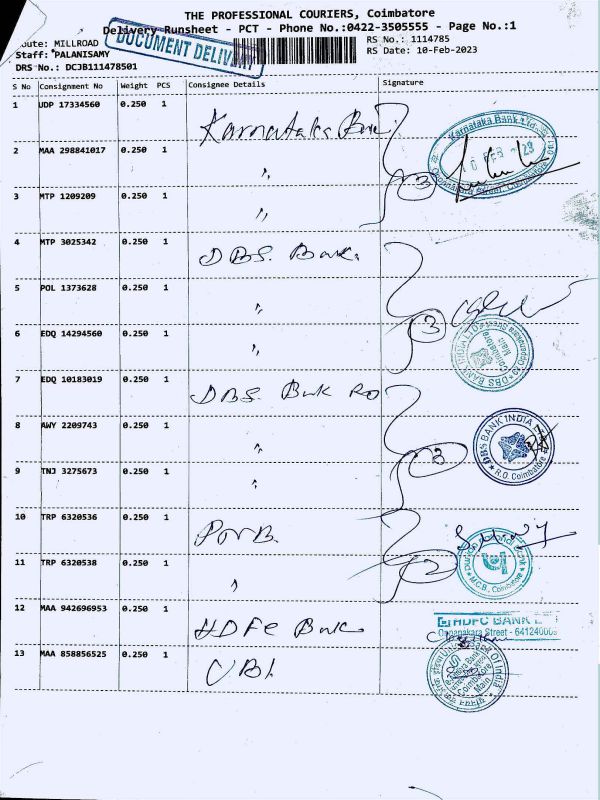 THE PROFESSIONAL COURIERS, Coimbatore
Delivery Runsheet - PCT - Phone No.:0422-3505555 - Page No.:1
DOCUMENT DELIVERY
Route: MILLROAD
RS No.: 1114785
Staff: PALANISAMY
RS Date: 10-Feb-2023
DRS No.: DCJB111478501
S No Consignment No Weight PCS Consignee Details Signature
1 UDP 17334560 0.250 1 Karnataka Bank
2 MAA 298841017 0.250 1 "
3 MTP 1209209 0.250 1 "
3
Karnataka Bank Ltd.
Oppanakara Street, Coimbatore
4 MTP 3025342 0.250 1 DBS. Bank.
5 POL 1373628 0.250 1 "
6 EDQ 14294560 0.250 1 "
3
DBS BANK INDIA LTD
Oppanakara Street
Coimbatore
Main
7 EDQ 10183019 0.250 1 DBS. Bank RO
8 AWY 2209743 0.250 1 "
9 TNJ 3275673 0.250 1 "
3
DBS BANK INDIA LTD
R.O. Coimbatore
10 TRP 6320536 0.250 1 PNB.
11 TRP 6320538 0.250 1 "
2
M.C.B., Coimbatore
12 MAA 942696953 0.250 1 HDFC Bank
HDFC BANK L
Oppanakara Street - 641
13 MAA 858856525 0.250 1 UBI.
Union Bank Of India
Coimbatore
Main